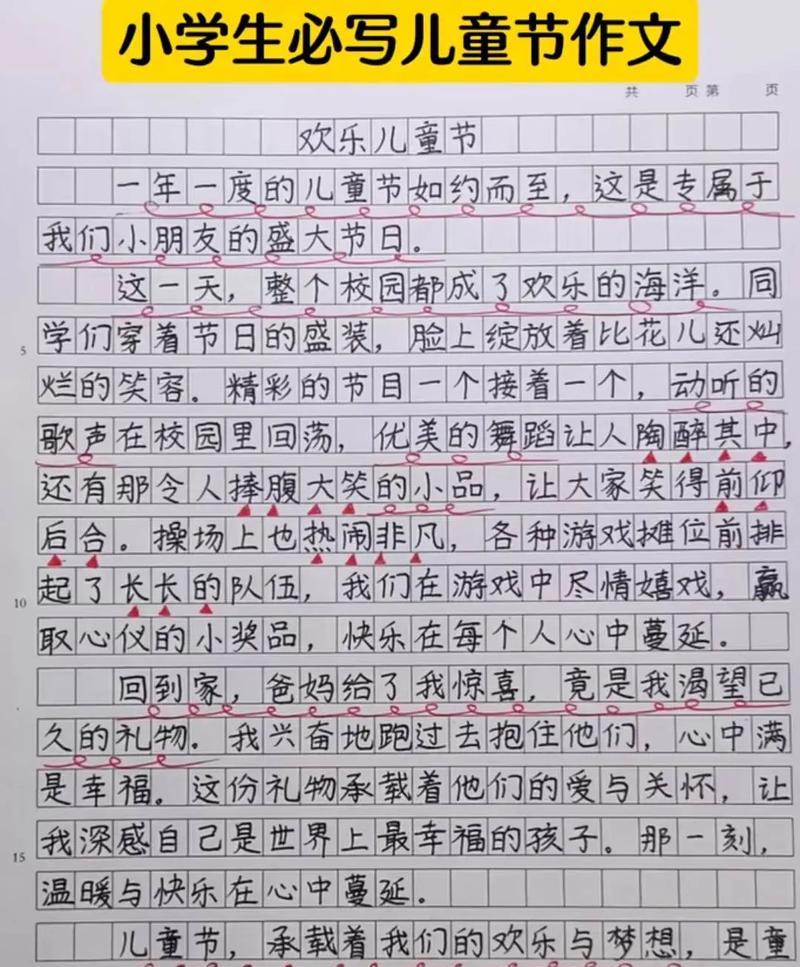 小学生必写儿童节作文
共 页 第 页
欢乐儿童节
一年一度的儿童节如约而至，这是专属于
我们小朋友的盛大节日。
这一天，整个校园都成了欢乐的海洋。同
5 学们穿着节日的盛装，脸上绽放着比花儿还灿
烂的笑容。精彩的节目一个接着一个，动听的
歌声在校园里回荡，优美的舞蹈让人陶醉其中，
还有那令人捧腹大笑的小品，让大家笑得前仰
后合。操场上也热闹非凡，各种游戏摊位前排
10 起了长长的队伍，我们在游戏中尽情嬉戏，赢
取心仪的小奖品，快乐在每个人心中蔓延。
回到家，爸妈给了我惊喜，竟是我渴望已
久的礼物。我兴奋地跑过去抱住他们，心中满
是幸福。这份礼物承载着他们的爱与关怀，让
15 我深感自己是世界上最幸福的孩子。那一刻，
温暖与快乐在心中蔓延。
儿童节，承载着我们的欢乐与梦想，是童